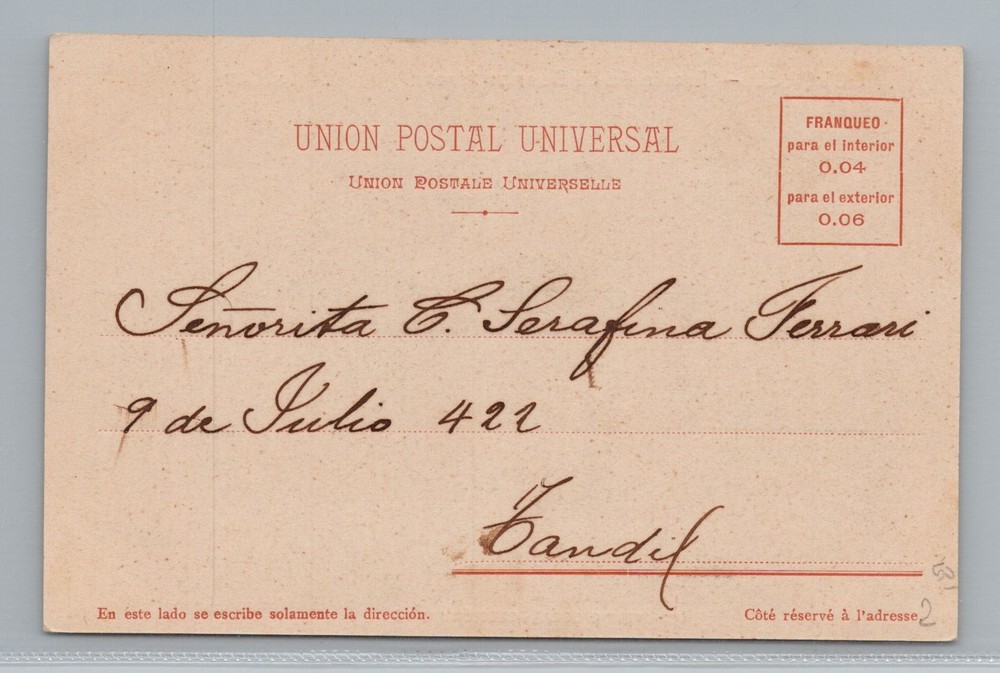 UNION POSTAL UNIVERSAL
UNION POSTALE UNIVERSELLE
FRANQUEO
para el interior
0.04
para el exterior
0.06
Señorita C. Serafina Ferrari
9 de Julio 422
Tandil
En este lado se escribe solamente la dirección.
Côté réservé à l'adresse
2